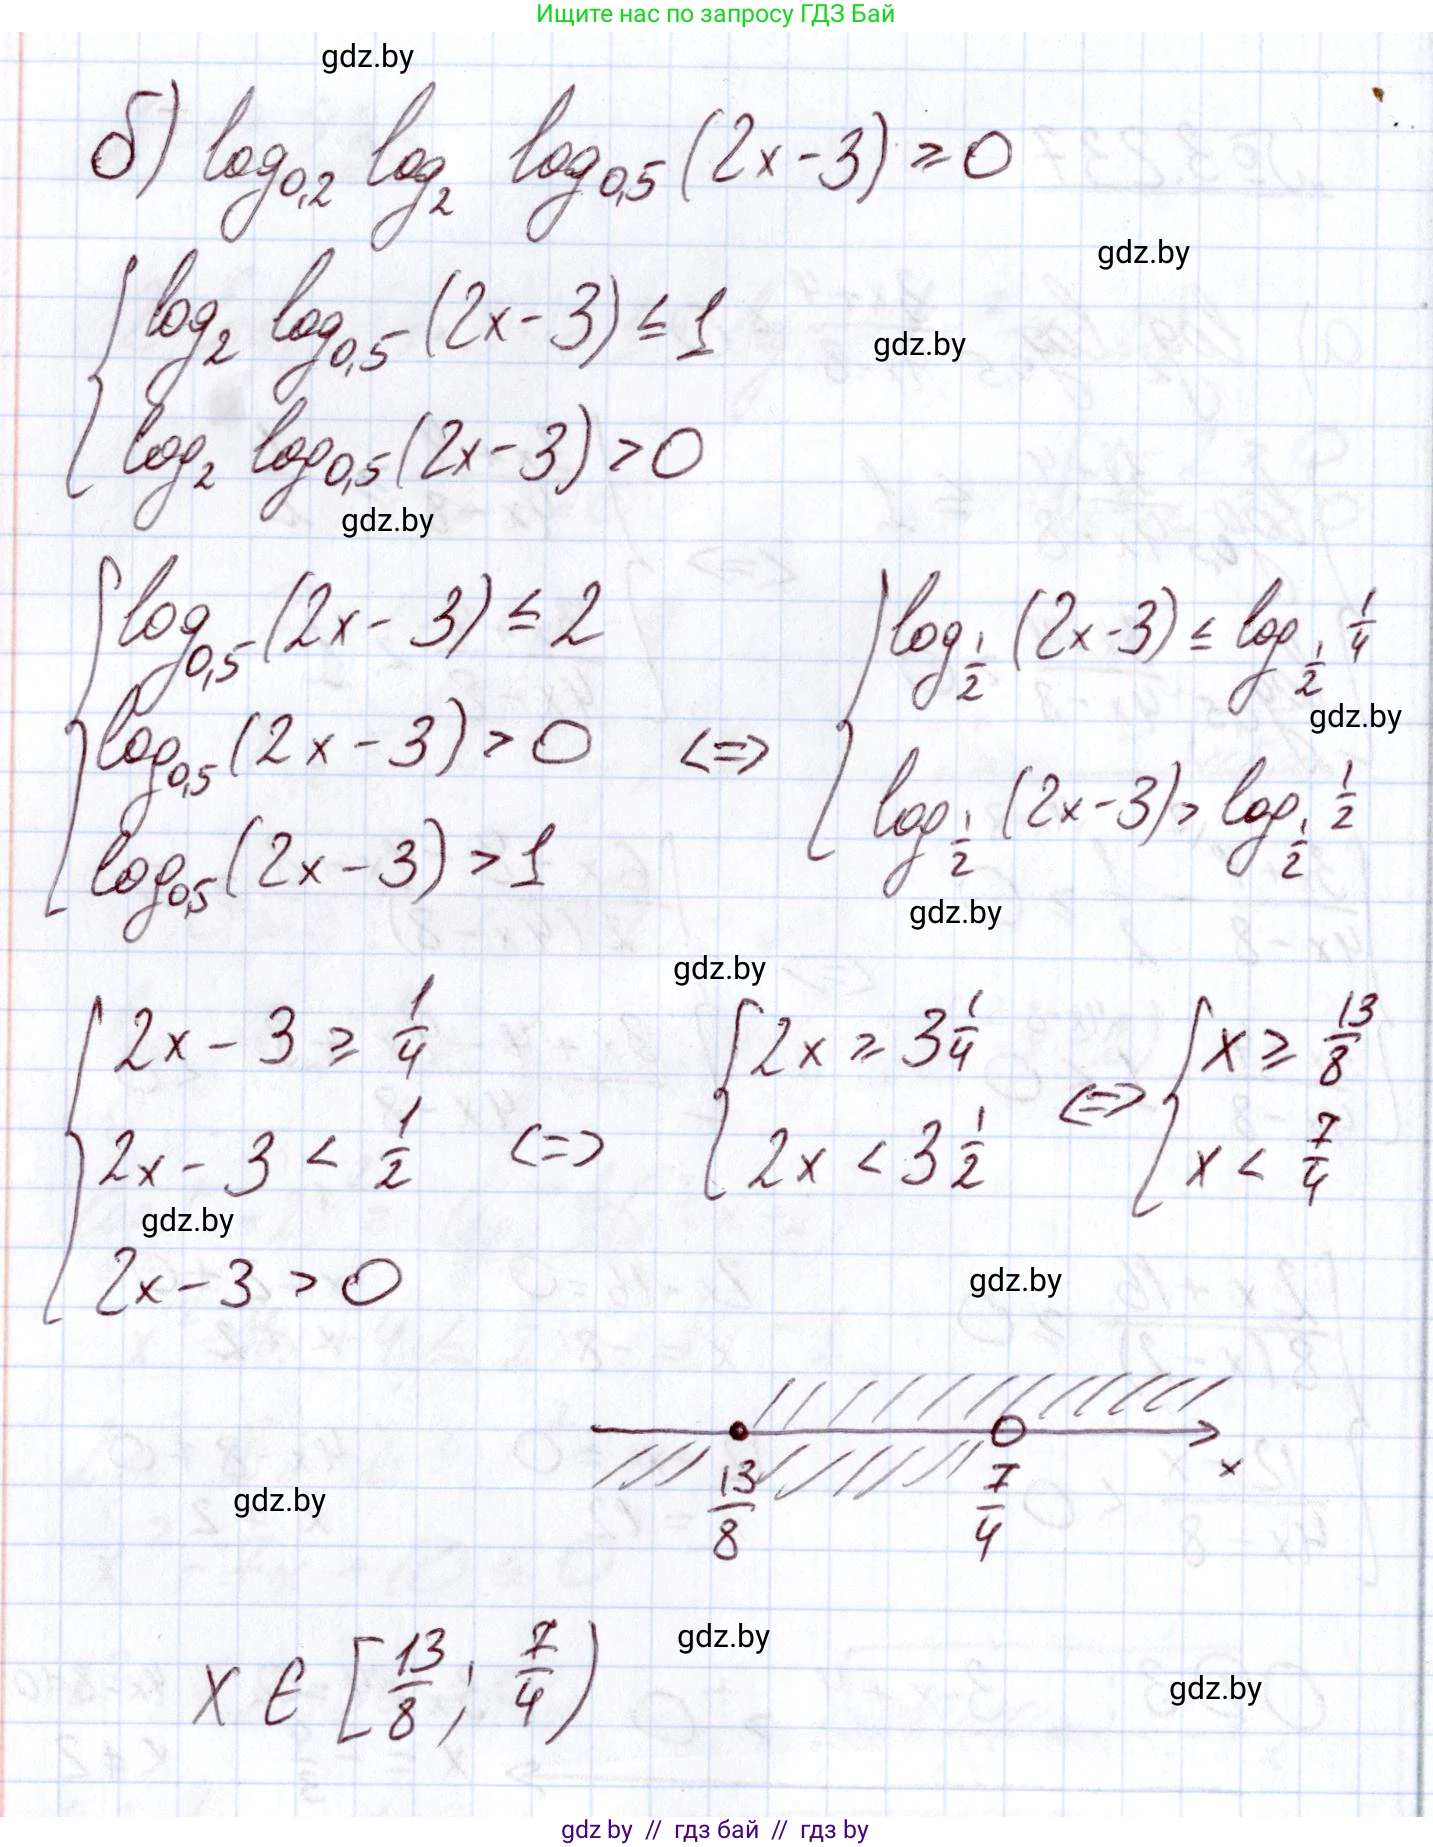 Ищите нас по запросу ГДЗ Бай
gdz.by
б) log_{0,2} log_2 log_{0,5} (2x-3) ≥ 0
gdz.by
log_2 log_{0,5} (2x-3) ≤ 1
gdz.by
log_2 log_{0,5} (2x-3) > 0
gdz.by
log_{0,5} (2x-3) ≤ 2
log_{0,5} (2x-3) > 0
log_{0,5} (2x-3) > 1
<=>
log_{1/2} (2x-3) ≤ log_{1/2} 1/4
gdz.by
log_{1/2} (2x-3) > log_{1/2} 1/2
gdz.by
gdz.by
2x-3 ≥ 1/4
2x-3 < 1/2
gdz.by
2x-3 > 0
<=>
2x ≥ 3 1/4
2x < 3 1/2
<=>
x ≥ 13/8
x < 7/4
gdz.by
x
13/8 7/4
gdz.by
x ∈ [13/8; 7/4)
gdz.by
gdz.by
gdz by // гдз бай // гдз by